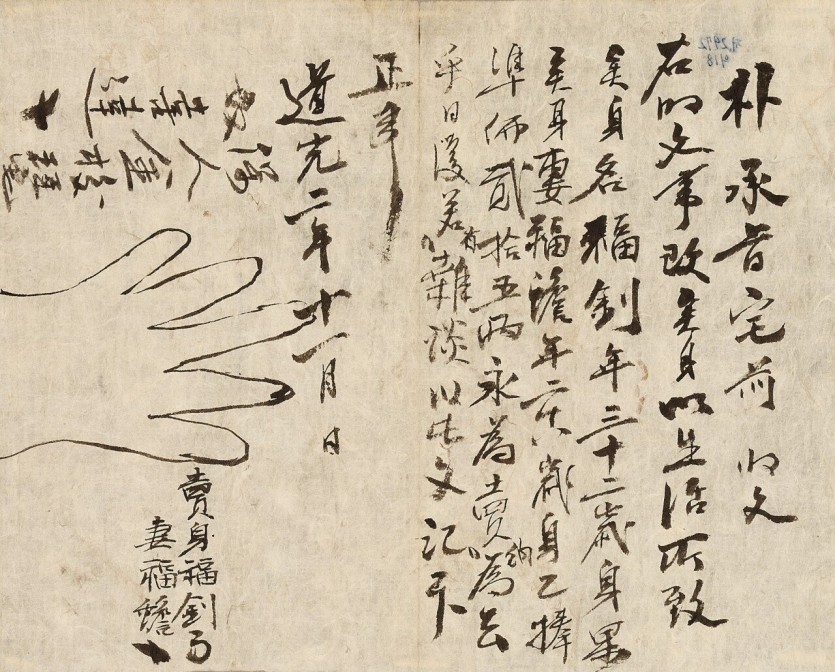 朴承旨宅前明文
右明文事段矣身以生活所致
矣身名福釗年三十二歲身果
矣身妻福蟾年二十八歲身乙捧
準価貳拾五兩永爲賣納爲去
乎日後若有雜談以此文記卞
正事
道光二年十一月日
賣身福釗
妻福蟾